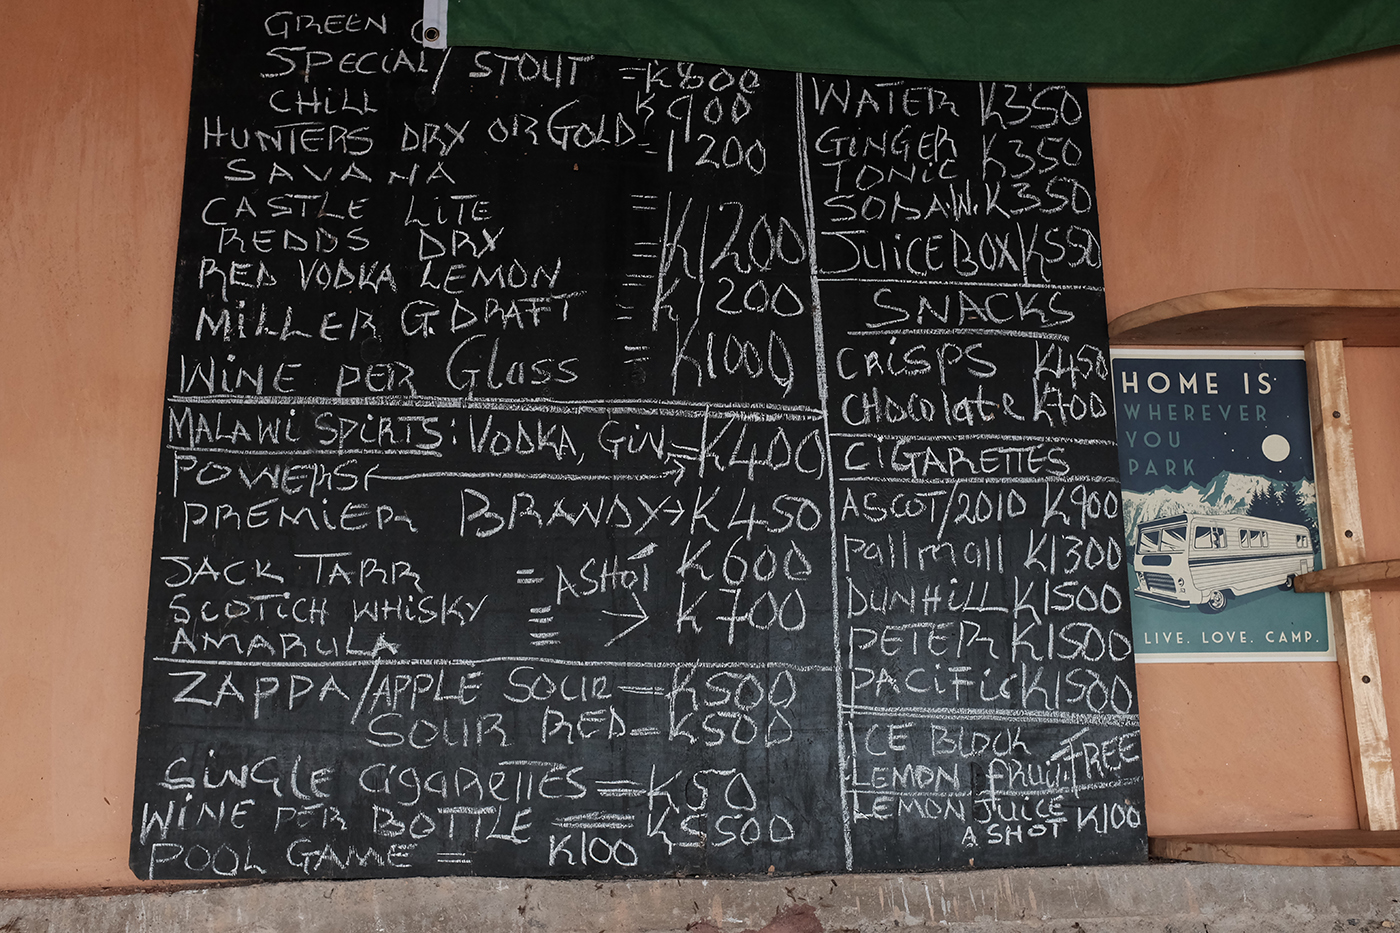 GREEN
SPECIAL/ STOUT =K800
CHILL K900
HUNTERS DRY OR GOLD = 1200
SAVANA
CASTLE LITE =
REDDS DRY = K1200
RED VODKA LEMON =
MILLER G.DRAFT = K1200
WINE PER Glass = K1000
MALAWI SPIRTS: VODKA, GIN = K400
POWERS
PREMIER BRANDY → K450
JACK TARR = A SHOT K600
SCOTICH WHISKY = → K700
AMARULA =
ZAPPA/APPLE SOUR = K500
SOUR RED = K500
SINGLE CIGARETTES = K50
WINE PER BOTTLE = K5500
POOL GAME = K100
WATER K350
GINGER K350
TONIC
SODA.W. K350
JUICE BOX K550
SNACKS
CRISPS K450
CHOCOLATE K700
CIGARETTES
ASCOT/2010 K900
Pall mall K1300
DUNHILL K1500
PETER K1500
PACIFIC K1500
ICE BLOCK =FREE
LEMON fRUI.
LEMON JUICE
A SHOT K100
HOME IS
WHEREVER
YOU
PARK
LIVE. LOVE. CAMP.